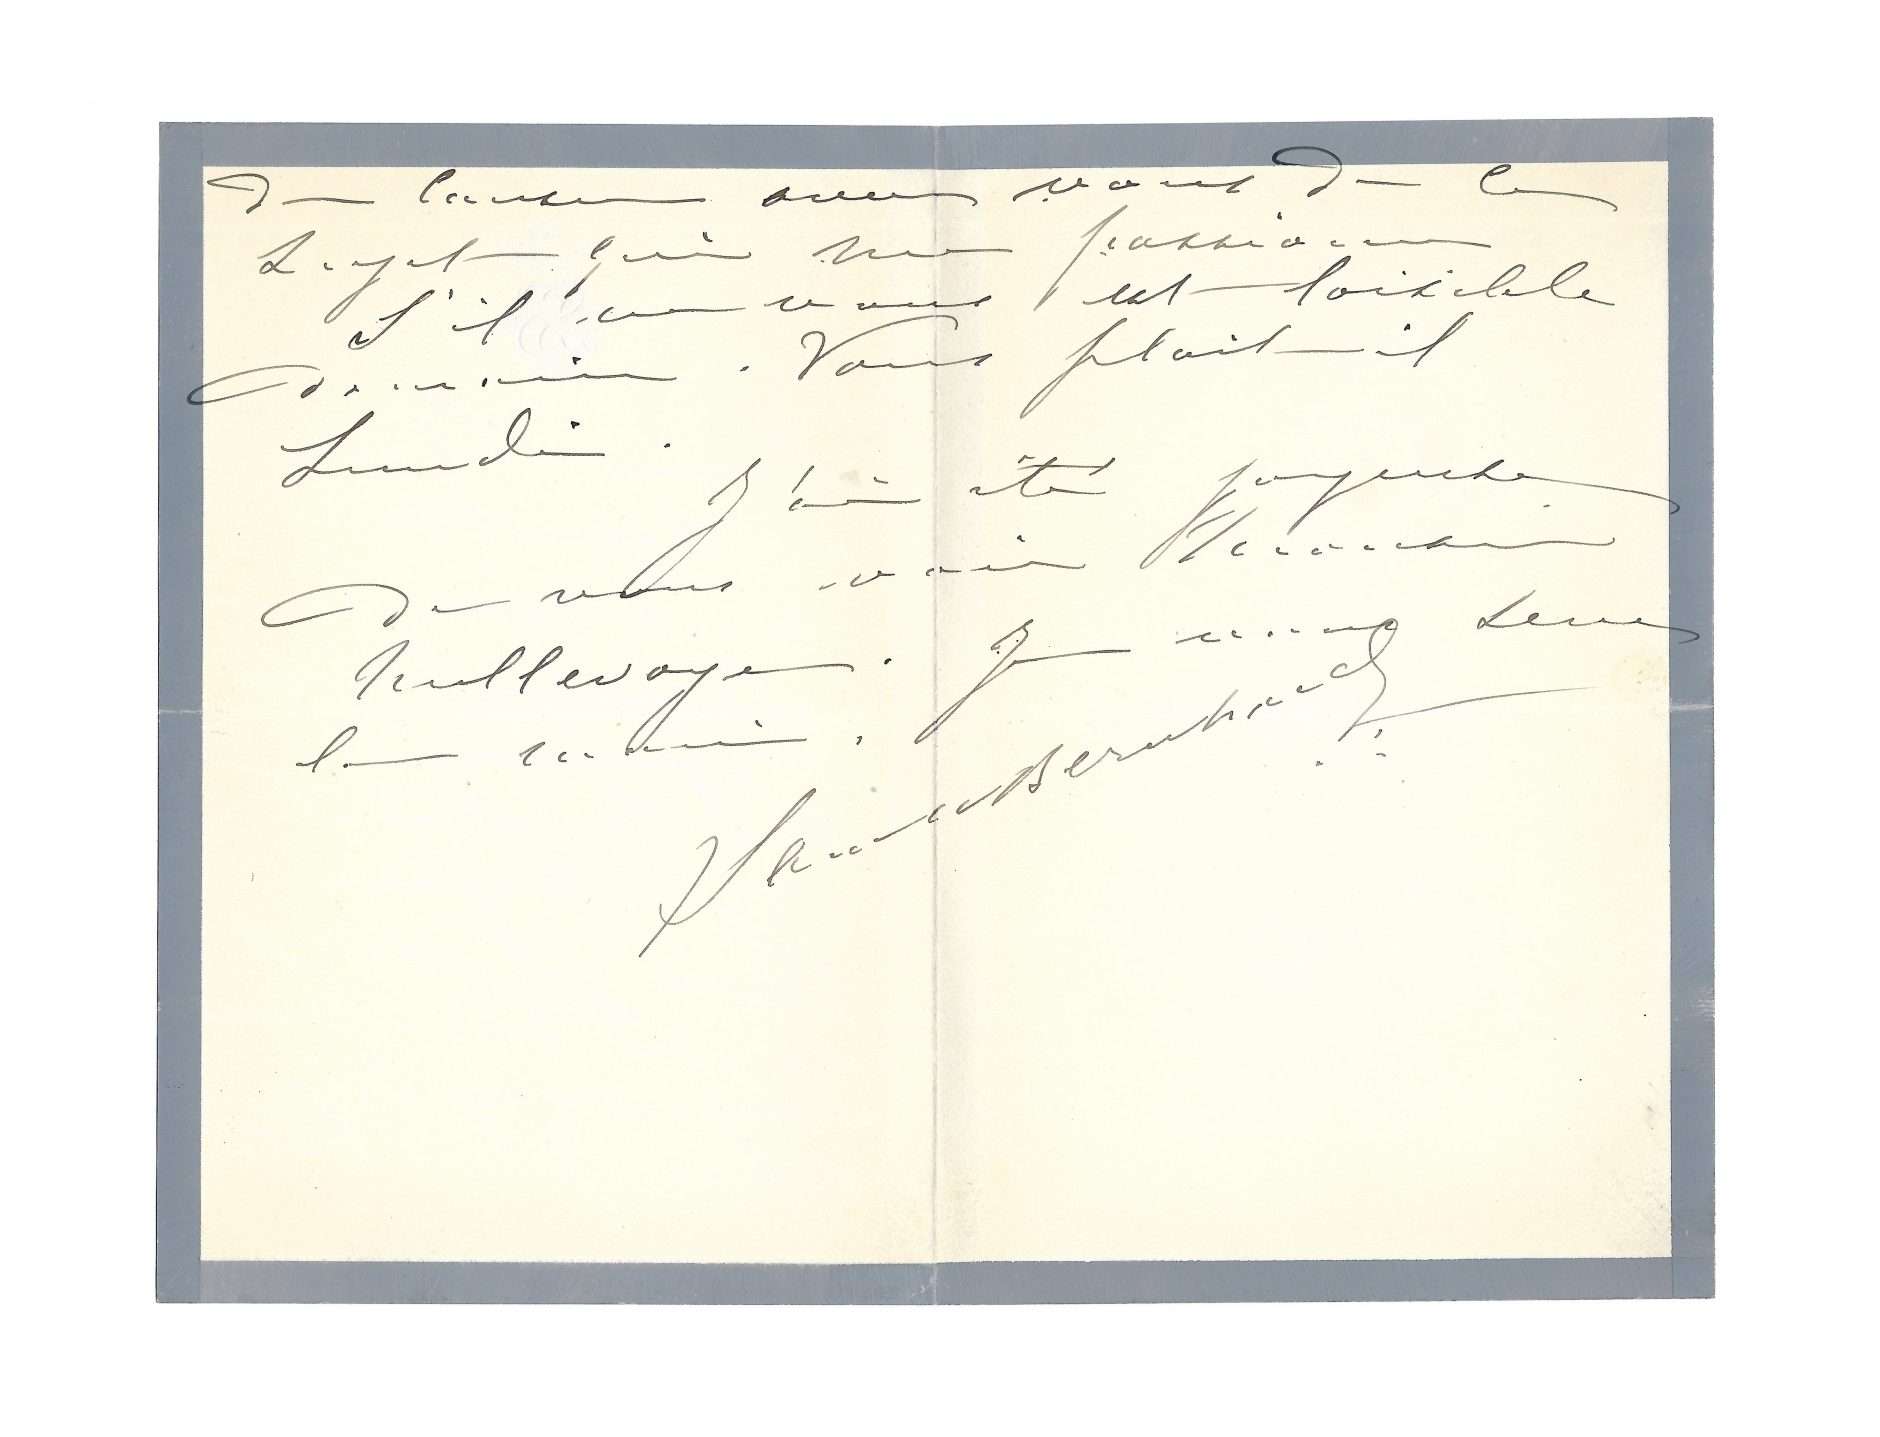 de causer avec vous de ce
sujet qui me passionne
s'il vous est loisible
demain. Vous plait-il
Lundi.
J'ai été joyeuse
de vous voir Monsieur
Millevoye. Je vous serre
la main.
Sarah Bernhardt